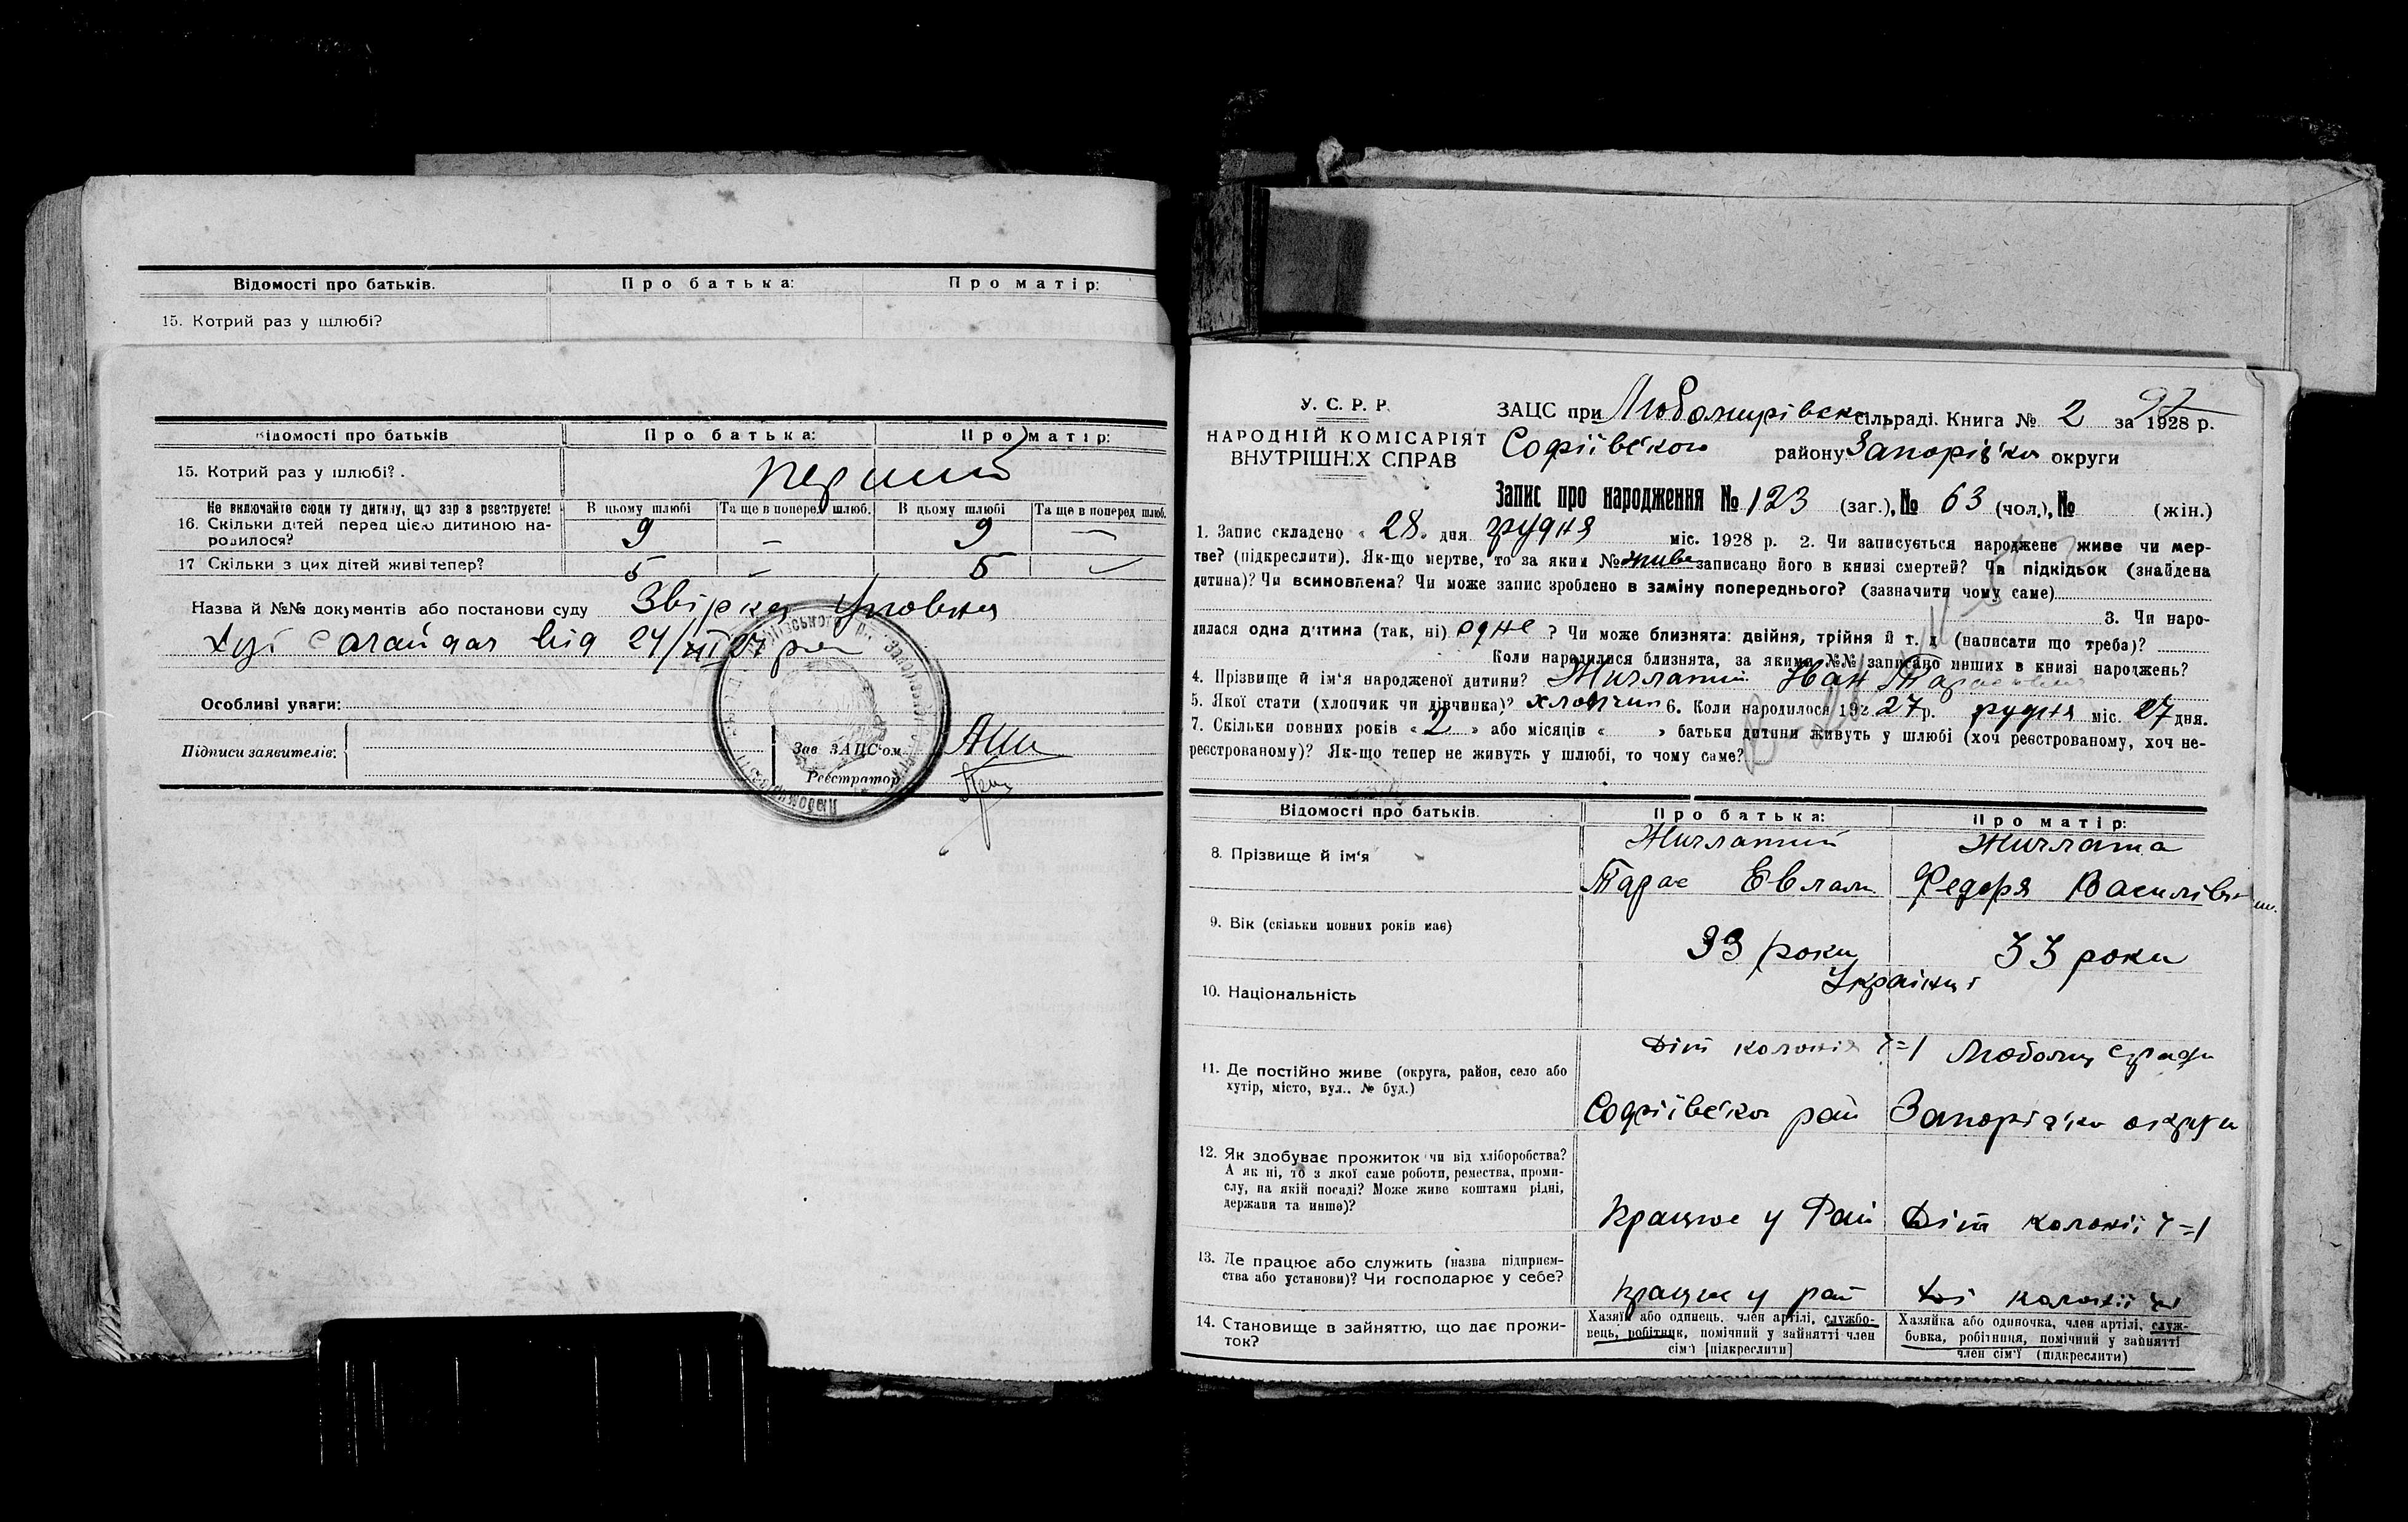 Відомості про батьків.
Про батька:
Про матір:
15. Котрий раз у шлюбі?
Відомості про батьків
Про батька:
Про матір:
15. Котрий раз у шлюбі?
перший
Не включайте сюди ту дитину, що зар з реєструєте!
В цьому шлюбі
Та ще в попере. шлюб.
В цьому шлюбі
Та ще в поперед шлюб.
16. Скільки дітей перед цією дитиною на-
родилося?
9 — 9 —
17 Скільки з цих дітей живі тепер?
5 5
Назва й №№ документів або постанови суду
від 24/XII 27 р
Особливі уваги:
Підписи заявителів:
Зав ЗАЦС'ом
Реєстратор
У. С. Р. Р.
НАРОДНІЙ КОМІСАРІЯТ
ВНУТРІШНІХ СПРАВ
ЗАЦС при Любомирівско сільраді. Книга № 2 за 1928 р.
27
Софіївского району Запоріз'кої округи
Запис про народження № 123 (заг.), № 63 (чол.), № (жін.)
1. Запис складено « 28 » дня грудня міс. 1928 р. 2. Чи записується народжене живе чи мер-
тве? (підкреслити). Як-що мертве, то за яким № живе записано його в книзі смертей? Чи підкідьок (знайдена
дитина)? Чи всиновлена? Чи може запис зроблено в заміну попереднього? (зазначити чому саме)
3. Чи наро-
дилася одна дитина (так, ні) одне ? Чи може близнята: двійня, трійня й т. д (написати що треба)?
Коли народилися близнята, за якими №№ записано инших в книзі народжень?
4. Прізвище й ім'я народженої дитини? Жичлатий Іван Тарасович
5. Якої стати (хлопчик чи дівчинка)? хлопчик 6. Коли народилося 192 27 р. грудня міс. 27 дня.
7. Скільки повних років « 2 » або місяців « » батьки дитини живуть у шлюбі (хоч реєстрованому, хоч не-
реєстрованому)? Як-що тепер не живуть у шлюбі, то чому саме?
Відомості про батьків.
Про батька:
Про матір:
8. Прізвище й ім'я
Жичлатий
Жичлата
Тарас Евлам.
Федоря Василівн
9. Вік (скільки повних років має)
33 роки
33 роки
10. Національність
Українці
11. Де постійно живе (округа, район, село або
хутір, місто, вул.. № буд.)
Діт колонія ч=1 Любом с/ради
Софіївської рай Запоріз'кої округи
12. Як здобуває прожиток чи від хліборобства?
А як ні, то з якої саме роботи, ремества, проми-
слу, на якій посаді? Може живе коштами рідні,
держави та инше)?
Працює у Рай Діт колонії ч=1
13. Де працює або служить (назва підприєм-
ства або установи)? Чи господарює у себе?
працює у рай колонії
14. Становище в зайняттю, що дає прожи-
ток?
Хазяїн або одинець, член артілі, службо-
вець, робітник, помічний у зайнятті член
сім'ї [підкреслити]
Хазяйка або одиночка, член артілі, служ-
бовка, робітниця, помічний у зайнятті
член сім'ї (підкреслити)